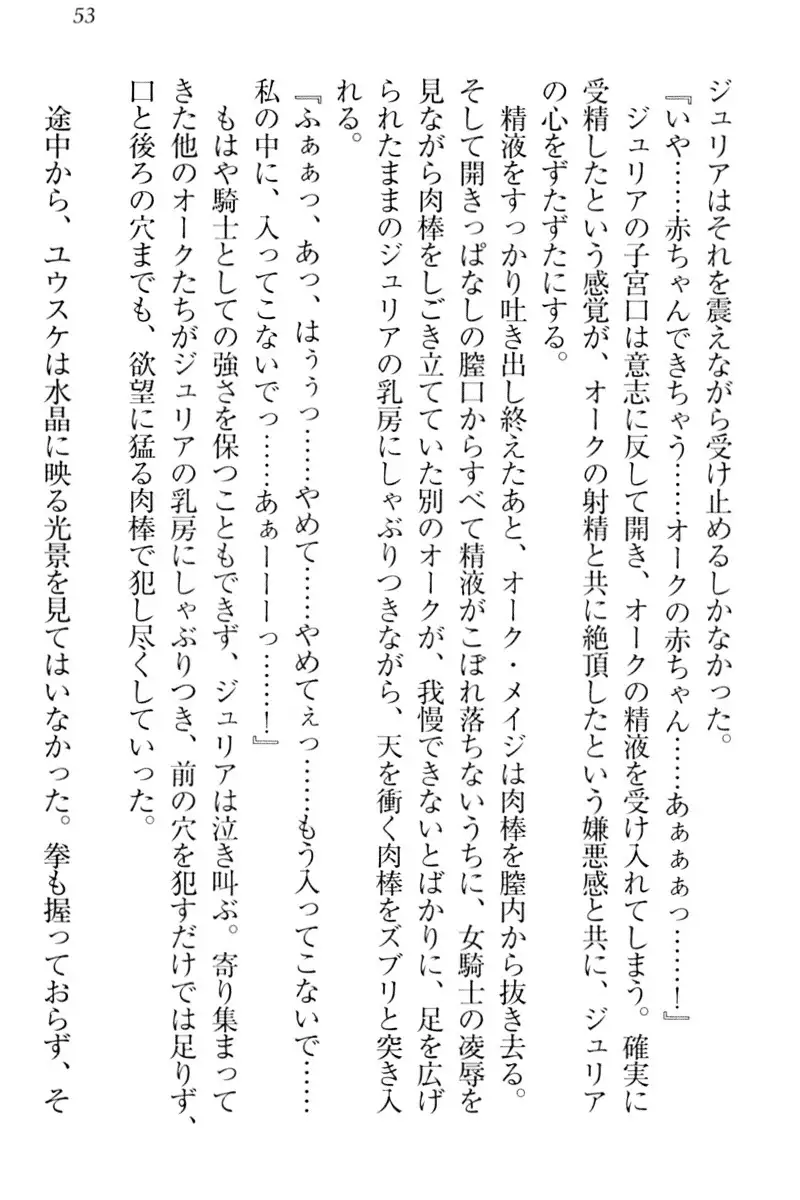 53
ジュリアはそれを震えながら受け止めるしかなかった。
『いや……赤ちゃんできちゃう……オークの赤ちゃん……あぁぁぁっ……！』
ジュリアの子宮口は意志に反して開き、オークの精液を受け入れてしまう。確実に
受精したという感覚が、オークの射精と共に絶頂したという嫌悪感と共に、ジュリア
の心をずたずたにする。
精液をすっかり吐き出し終えたあと、オーク・メイジは肉棒を膣内から抜き去る。
そして開きっぱなしの膣口からすべて精液がこぼれ落ちないうちに、女騎士の凌辱を
見ながら肉棒をしごき立てていた別のオークが、我慢できないとばかりに、足を広げ
られたままのジュリアの乳房にしゃぶりつきながら、天を衝く肉棒をズブリと突き入
れる。
『ふぁぁっ、あっ、はぅぅっ……やめて……やめてぇっ……もう入ってこないで……
私の中に、入ってこないでっ……あぁーーーっ……！』
もはや騎士としての強さを保つこともできず、ジュリアは泣き叫ぶ。寄り集まって
きた他のオークたちがジュリアの乳房にしゃぶりつき、前の穴を犯すだけでは足りず、
口と後ろの穴までも、欲望に猛る肉棒で犯し尽くしていった。
途中から、ユウスケは水晶に映る光景を見てはいなかった。拳も握っておらず、そ